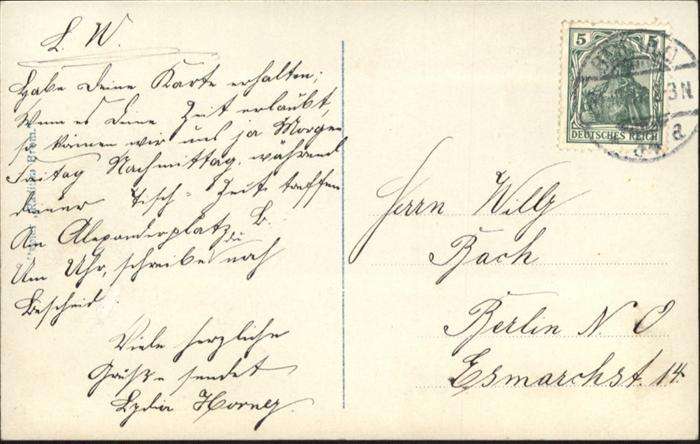 L. W.
Habe Deine Karte erhalten;
Wenn es Deine Zeit erlaubt,
so können wir uns ja Morgen
Freitag Nachmittag, während
Deiner Tisch-Zeit treffen
Am Alexanderplatz B.
Um Uhr, schreibe noch
Bescheid
Viele herzliche
Grüße sendet
Lydia Horney.
5 5
DEUTSCHES REICH
BERLIN
3 N.
a
Herrn Willy
Bach
Berlin N. O
Esmarchst. 14.